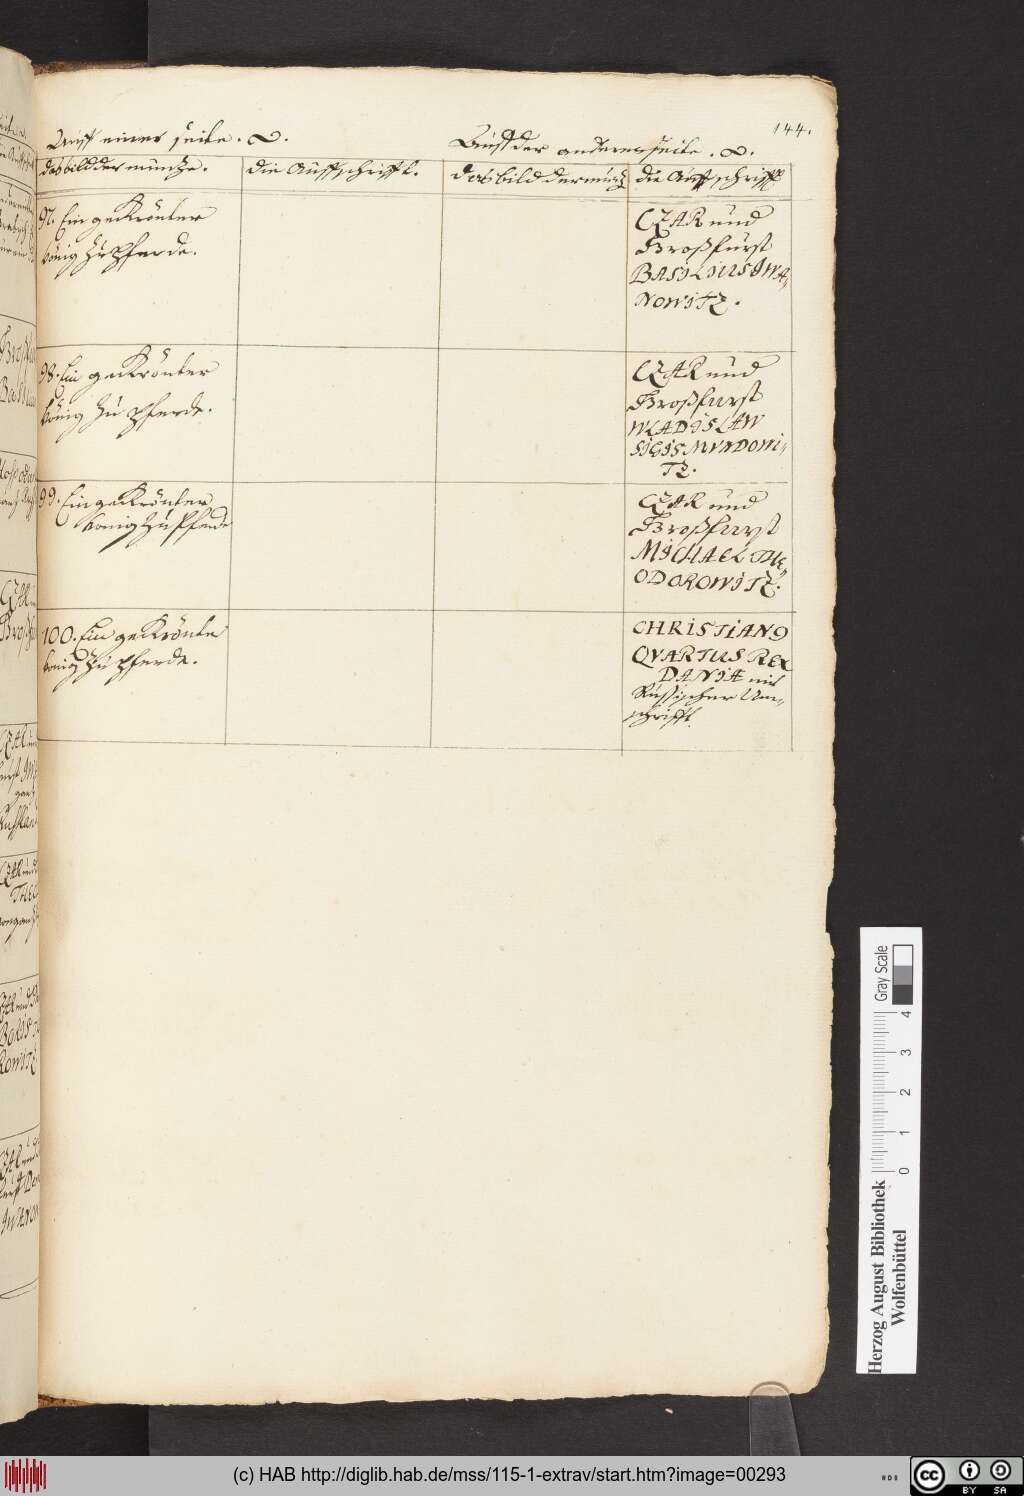 144.
Auff einer seite.
Auff der anderen seite.
das bild der müntze.
die Auffschrifft.
das bild der müntz
die Auffschrifft
97. Ein geKrönter
König zu pferde.
CZAR und
Großfürst
BASILIUS IWA,
NOWITZ.
98. Ein geKrönter
König zu pferde.
CZAR und
Großfurst
WLADISLAW
SIGISMUNDOWI,
TZ.
99. Ein geKrönter
König zu Pferde
CZAR und
Großfurst
MICHAEL THE,
ODOROWITZ.
100. Ein geKrönte
König zu pferde.
CHRISTIANO
QVARTUS REX
DANIA mit
Rußischer Um,
schrifft.
Herzog August Bibliothek
Wolfenbüttel
0 1 2 3 4
Gray Scale
(c) HAB http://diglib.hab.de/mss/115-1-extrav/start.htm?image=00293
HAB
cc BY SA